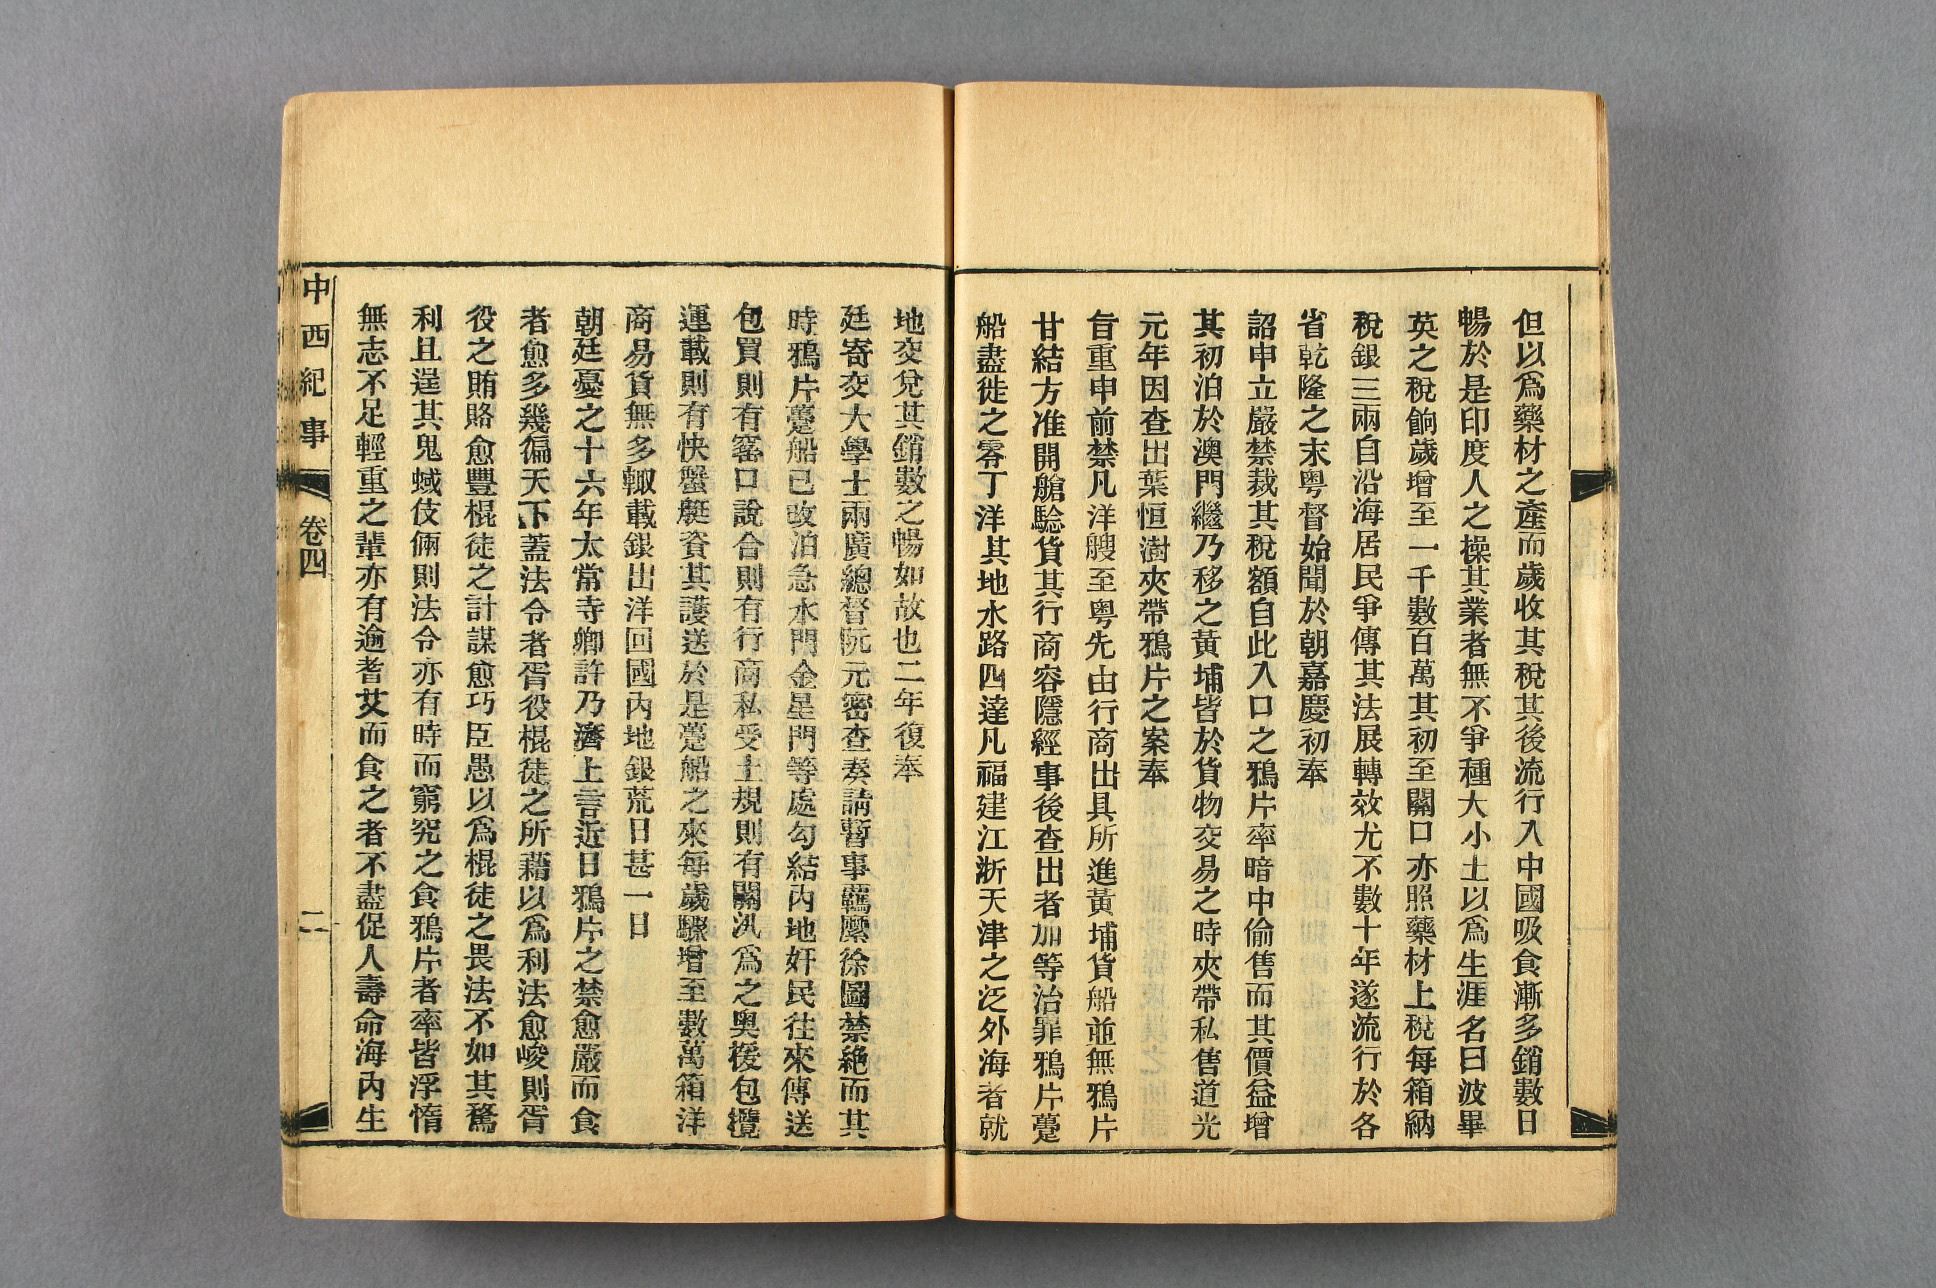 但以爲藥材之產而歲收其稅其後流行入中國吸食漸多銷數日
暢於是印度人之操其業者無不爭種大小土以爲生涯名曰波畢
英之稅餉歲增至一千數百萬其初至關口亦照藥材上稅每箱納
稅銀三兩自沿海居民爭傳其法展轉效尤不數十年遂流行於各
省乾隆之末粤督始聞於朝嘉慶初奉
詔申立嚴禁裁其稅額自此入口之鴉片率暗中偷售而其價益增
其初泊於澳門繼乃移之黃埔皆於貨物交易之時夾帶私售道光
元年因查出葉恒澍夾帶鴉片之案奉
旨重申前禁凡洋艘至粤先由行商出具所進黃埔貨船並無鴉片
甘結方准開艙驗貨其行商容隱經事後查出者加等治罪鴉片躉
船盡徙之零丁洋其地水路四達凡福建江浙天津之泛外海者就
地交兌其銷數之暢如故也二年復奉
廷寄交大學士兩廣總督阮元密查奏請暫事羈縻徐圖禁絶而其
時鴉片躉船已改泊急水門金星門等處勾結內地奸民往來傳送
包買則有窰口說合則有行商私受土規則有關汛爲之奥援包攬
運載則有快蟹艇資其護送於是躉船之來每歲驟增至數萬箱洋
商易貨無多輙載銀出洋回國內地銀荒日甚一日
朝廷憂之十六年太常寺卿許乃濟上言近日鴉片之禁愈嚴而食
者愈多幾徧天下蓋法令者胥役棍徒之所藉以爲利法愈峻則胥
役之賄賂愈豐棍徒之計謀愈巧臣愚以爲棍徒之畏法不如其騖
利且逞其鬼蜮伎倆則法令亦有時而窮究之食鴉片者率皆浮惰
無志不足輕重之輩亦有逾耆艾而食之者不盡促人壽命海內生
中西紀事 卷四 二